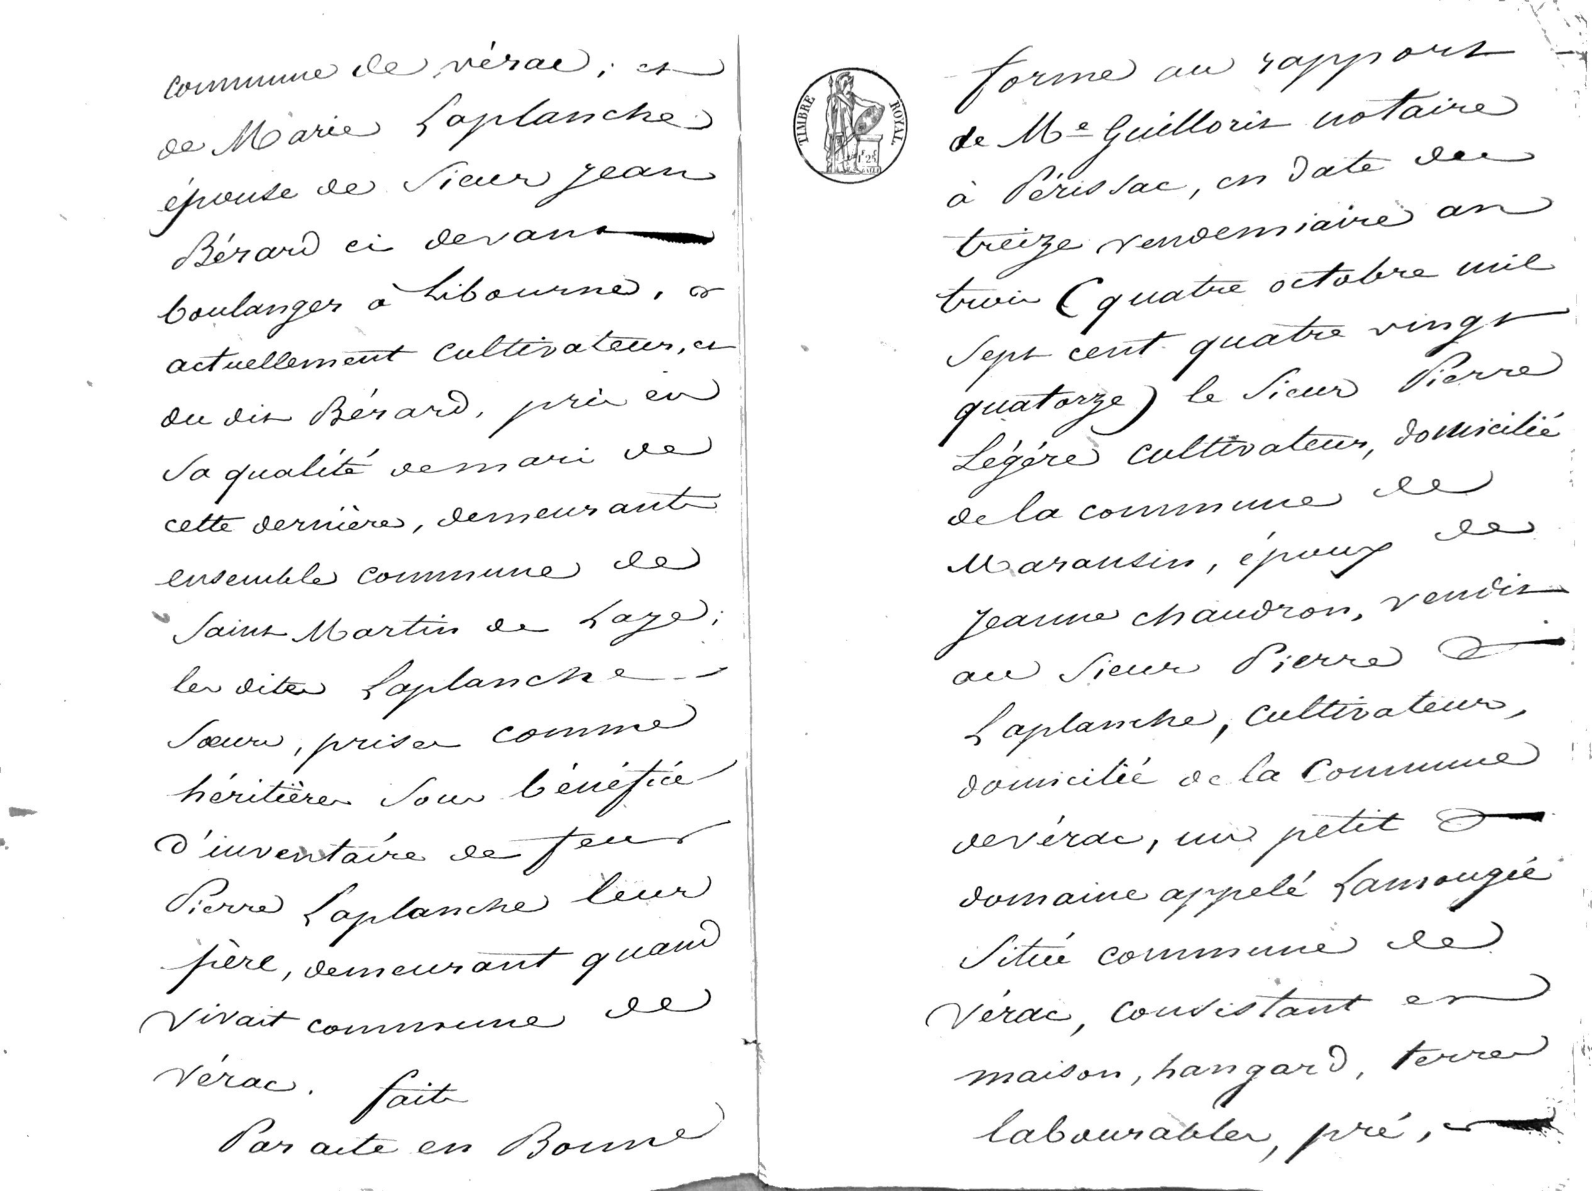 commune de vérac; et
de Marie Laplanche
épouse de Sieur Jean
Bérard ci devant
boulanger à Libourne, &
actuellement cultivateur, et
du dit Bérard, pris en
Sa qualité de mari de
cette dernière, demeurant
ensemble commune de
Saint Martin de Laye;
les dites Laplanche
Sœurs, prises comme
héritières Sous bénéfice
d'inventaire de feu
Pierre Laplanche leur
père, demeurant quand
vivait commune de
vérac. fait
Par acte en Bonne
TIMBRE ROYAL
1f 25c
forme au rapport
de Me Guillorit notaire
à Périssac, en date du
treize vendemiaire an
trois (quatre octobre mil
Sept cent quatre vingt
quatorze) le Sieur Pierre
Légére cultivateur, domicilié
de la commune de
Maransin, époux de
Jeanne chaudron, vendit
au Sieur Pierre
Laplanche, cultivateur,
domicilié de la Commune
de vérac, un petit
domaine appelé Lamougié
Situé commune de
Vérac, consistant en
maison, hangard, terres
labourables, pré, et